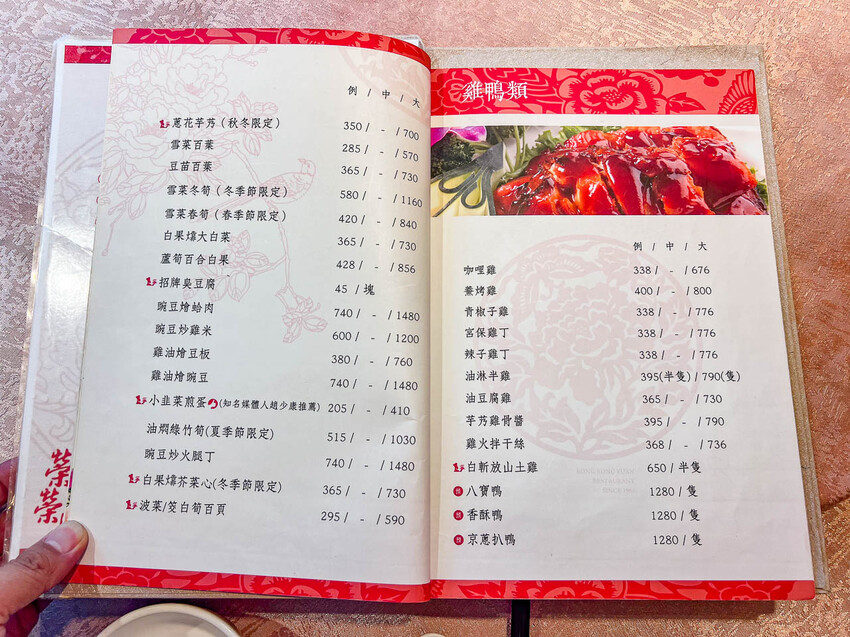 例 / 中 / 大
蔥花芋艿 (秋冬限定) 350 / - / 700
雪菜百葉 285 / - / 570
豆苗百葉 365 / - / 730
雪菜冬筍 (冬季節限定) 580 / - / 1160
雪菜春筍 (春季節限定) 420 / - / 840
白果㸆大白菜 365 / - / 730
蘆筍百合白果 428 / - / 856
招牌臭豆腐 45 / 塊
豌豆燴蛤肉 740 / - / 1480
豌豆炒雞米 600 / - / 1200
雞油燴豆板 380 / - / 760
雞油燴豌豆 740 / - / 1480
小韭菜煎蛋 (知名媒體人趙少康推薦) 205 / - / 410
油燜綠竹筍(夏季節限定) 515 / - / 1030
豌豆炒火腿丁 740 / - / 1480
白果㸆芥菜心(冬季節限定) 365 / - / 730
波菜/筊白筍百頁 295 / - / 590
榮榮
雞鴨類
例 / 中 / 大
咖哩雞 338 / - / 676
薰烤雞 400 / - / 800
青椒子雞 338 / - / 776
宮保雞丁 338 / - / 776
辣子雞丁 338 / - / 776
油淋半雞 395(半隻) / 790(隻)
油豆腐雞 365 / - / 730
芋艿雞骨醬 395 / - / 790
雞火拌干絲 368 / - / 736
白斬放山土雞 650 / 半隻
預 八寶鴨 1280 / 隻
預 香酥鴨 1280 / 隻
預 京蔥扒鴨 1280 / 隻